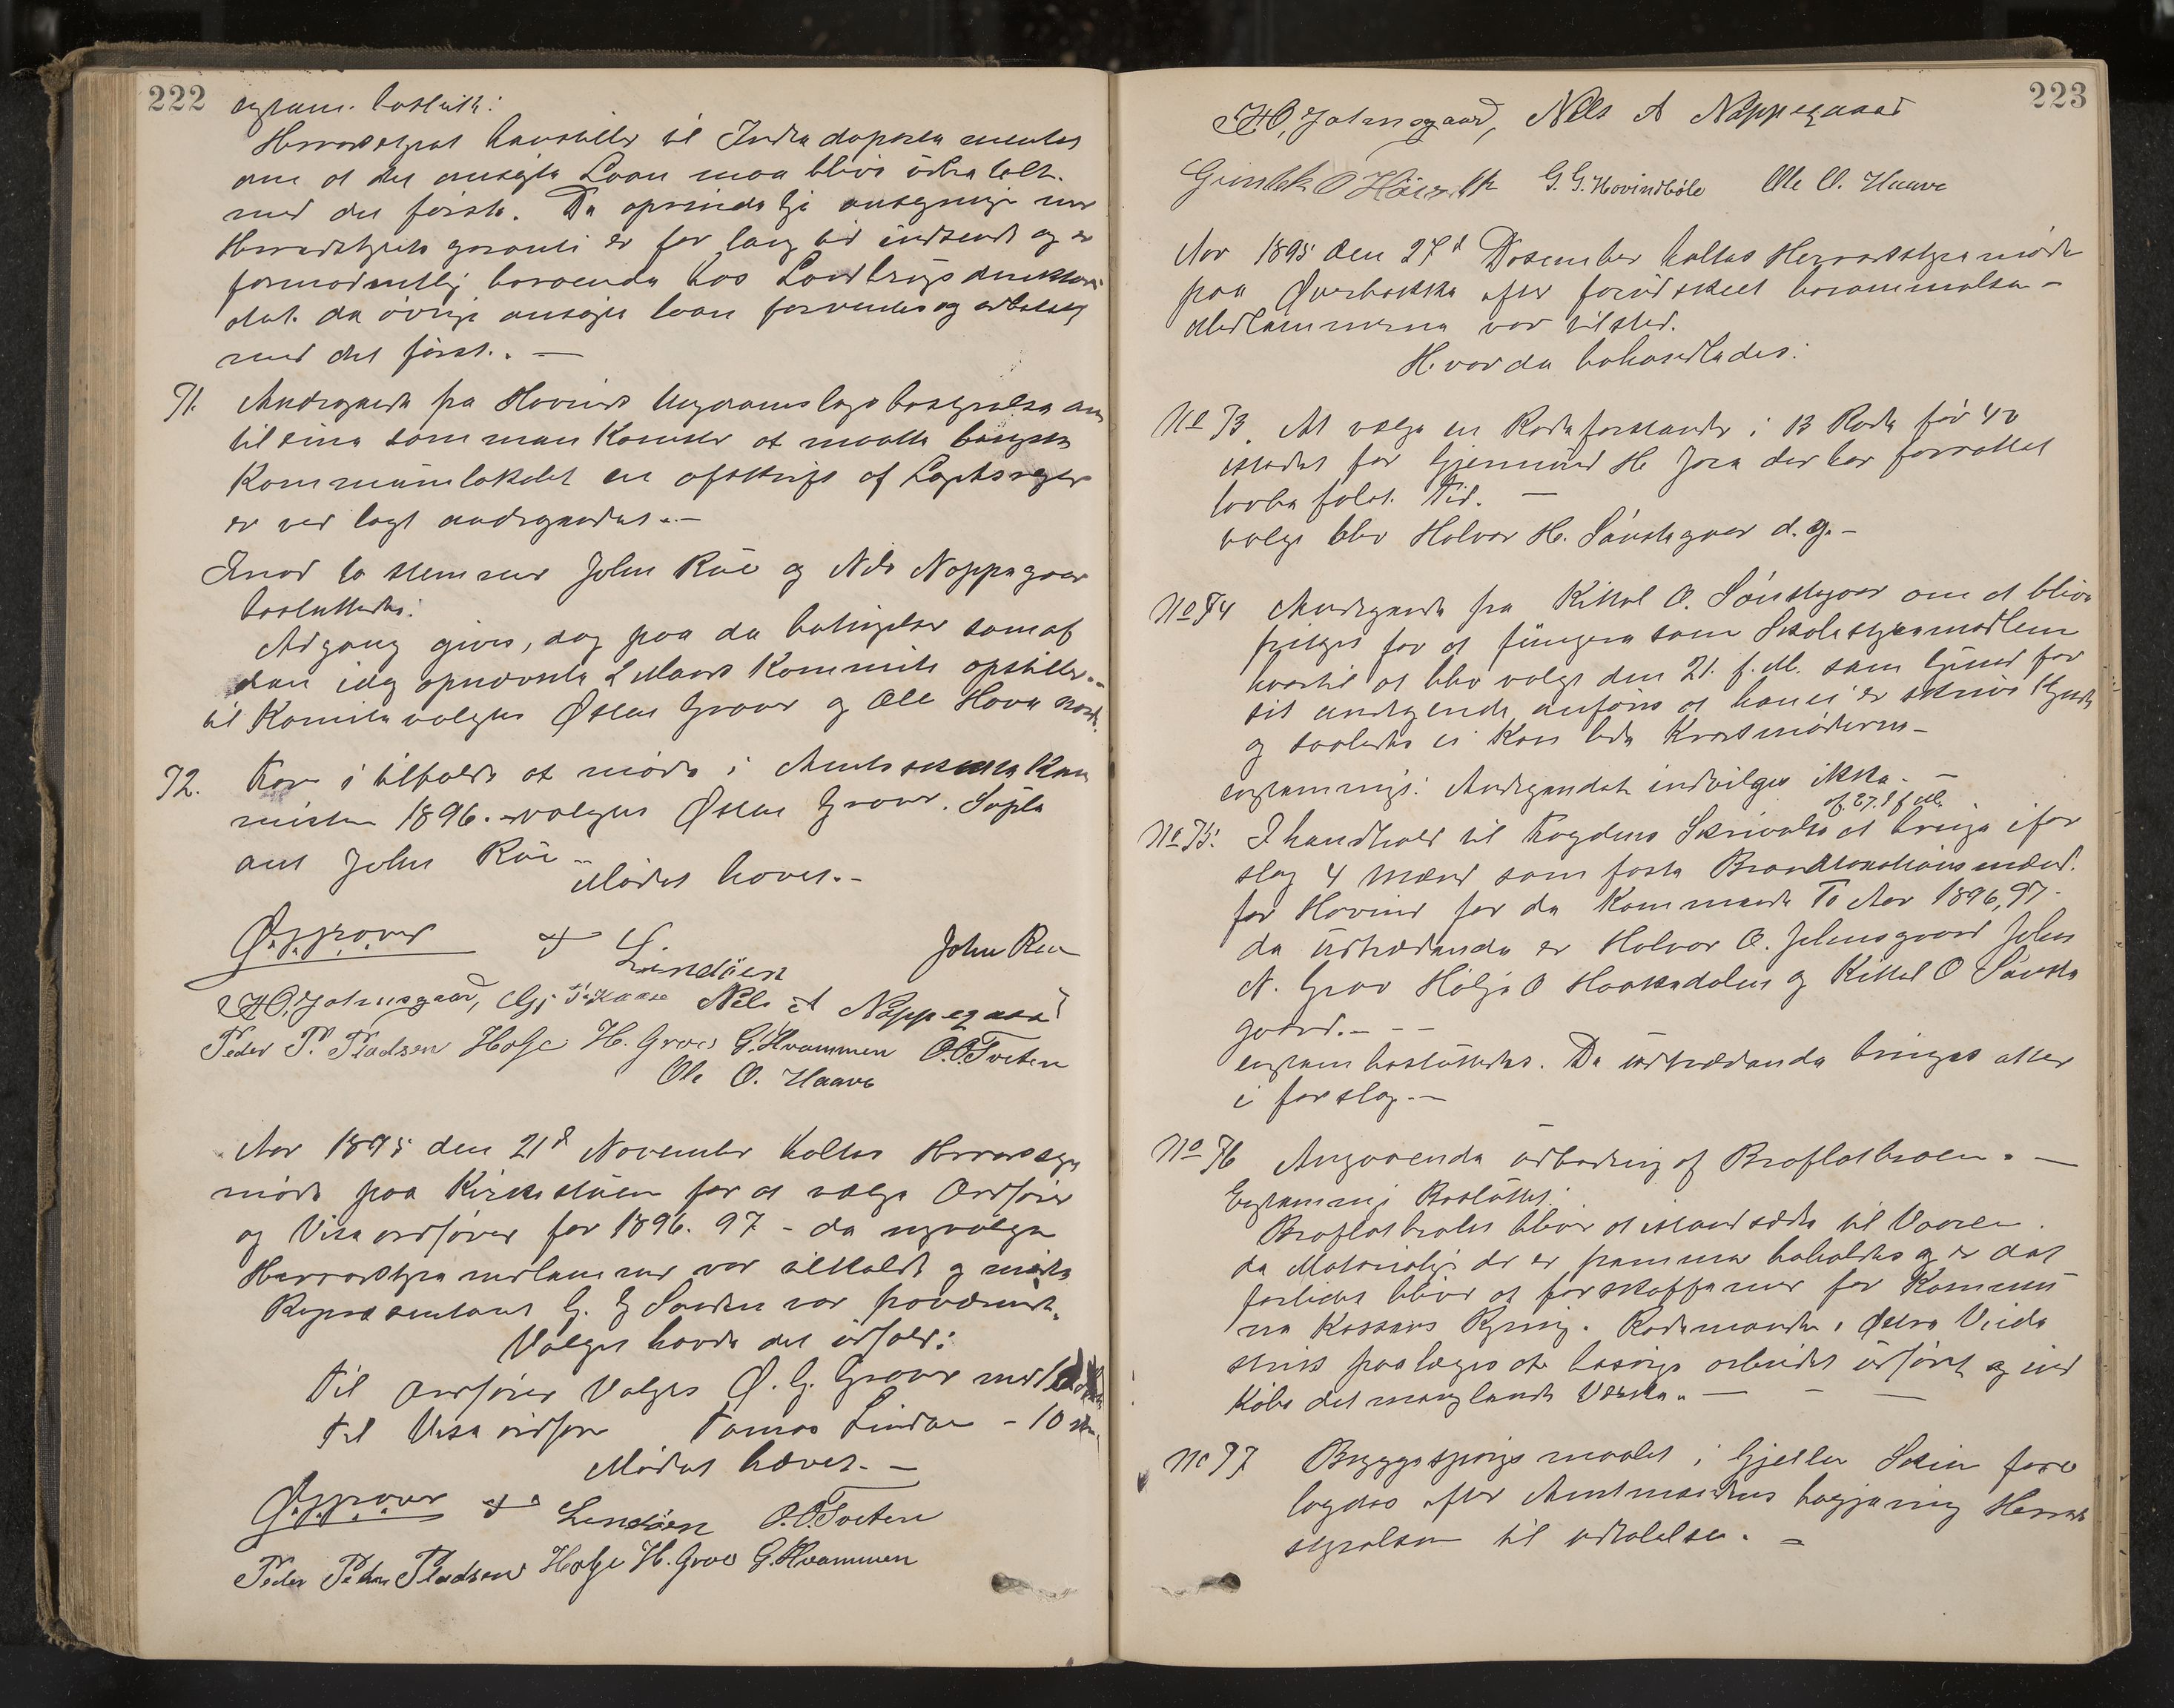 222
enstem. besluttet:
Herredstyret henstiller til Indredepartementet
om at det ansøgte Laan maa blive udbetalt
med det første. Da oprindelig ansøgning med
Herredstyrets garanti er for lang tid indsendt og er
formodentlig beroende hos Landbrugsdirektøren
det øvrige ansøgte laan forventes og udbetalt
med det første. —
71. Andragende fra Hovind Ungdomslags bestyrelse om
til sine sammenkomster at maatte benytte
Kommunelokalet en afskrift af Lagets regler
er ved lagt andragendet. —
Imod to stemmer John Rue og Nils Noppegaar
besluttedes:
Adgang gives, dog paa de betingelser som af
den idag opnævnte 2 Mands Kommite opstilles. —
til Komite valgtes Østen Graver og Ole Hova
72. For i tilfælde at møde i
1896. valgtes Østen Graver. Suple
ant John Rue —
Mødet hævet. —
Ø. G. Graver T. Lindöen John Rue
H.O. Johnsgaard, Nils A Nøppegaard
Peder P. Pladsen Helge H. Grave G. Kvammen O.O. Tveten
Ole O. Haave
Aar 1895 den 21de November holtes Herredstyre
møde paa Kirkestuen for at vælge Ordfører
og Viseordfører for 1896. 97 – de nyvalgte
Herredstyremedlemmer var tilkaldt og mødte
Repræsentant G. G. Sønden var fraværende.
Valget havde det udfald:
Til Ordfører Valgtes Ø. G. Graver med
til Viseordfører Tomas Lindøen – 10 stm.
Mødet hævet. —
Ø. G. Graver T. Lindöen O.O. Tveten
Peder Peders Pladsen Helge H. Grave G. Kvammen
223
H.O. Johnsgaard, Nils A Nøppegaard
G.G. Hovindbøle Ole O. Haave
Aar 1895 den 27d Desember holtes Herredstyremøde
paa Øverbekka efter forud skeet berammelse –
Medlemmerne var tilsted.
Hvorda behandledes:
No 73. At vælge en Rodeforstander i 13 Rode før 40
istedet for Gjermund H. Jøra der har forrettet
lovbefalet Tid. —
valgt blev Halvor H. Sønstegaar d. y. —
No 74 Andragende fra Kittel O. Sønstegaar om at blive
fritaget for at fungere som Skolestyremedlem
hvortil at blev valgt den 21. f. M. som Grund for
sit andragende anføres at han ei er skrivekyndig
og saaledes ei kan lede Kredsmøderne —
enstemmigt: Andragendet indvilges ikke. —
No 75. I henhold til Fogdens Skrivelse af 27. f.M. at bringe i for
slag 4 Mænd som faste Brandtaxtionsmænd
for Hovind for de kommende To Aar 1896, 97.
de Udtrædende er Halvor O. Johnsgaard John
N. Grav Helge O Haakedalen og Kittel O Sønste
gaard. — — —
enstem besluttedes. De udtrædende bringes atter
i forslag. —
No 76 Angaaende udbedring af Broflotbroen. —
Enstemmig Besluttet:
Broflotbroen bliver at istandsætte til Vaaren.
de Materialier der er fremme beholdes og er det
forlidet bliver at forskaffe mer for Kommu
ne Kassens Regning. Rodemanden i Østre Veide
strikt paalægges at besørge arbeidet udført og ind
kjøbe det manglende Værke. — — —
No 77 Bryggespørgsmaalet i Gjellen Skien fore
lagdes efter Amtmandens begjæring Herreds
styrelsen til udtalelse. —